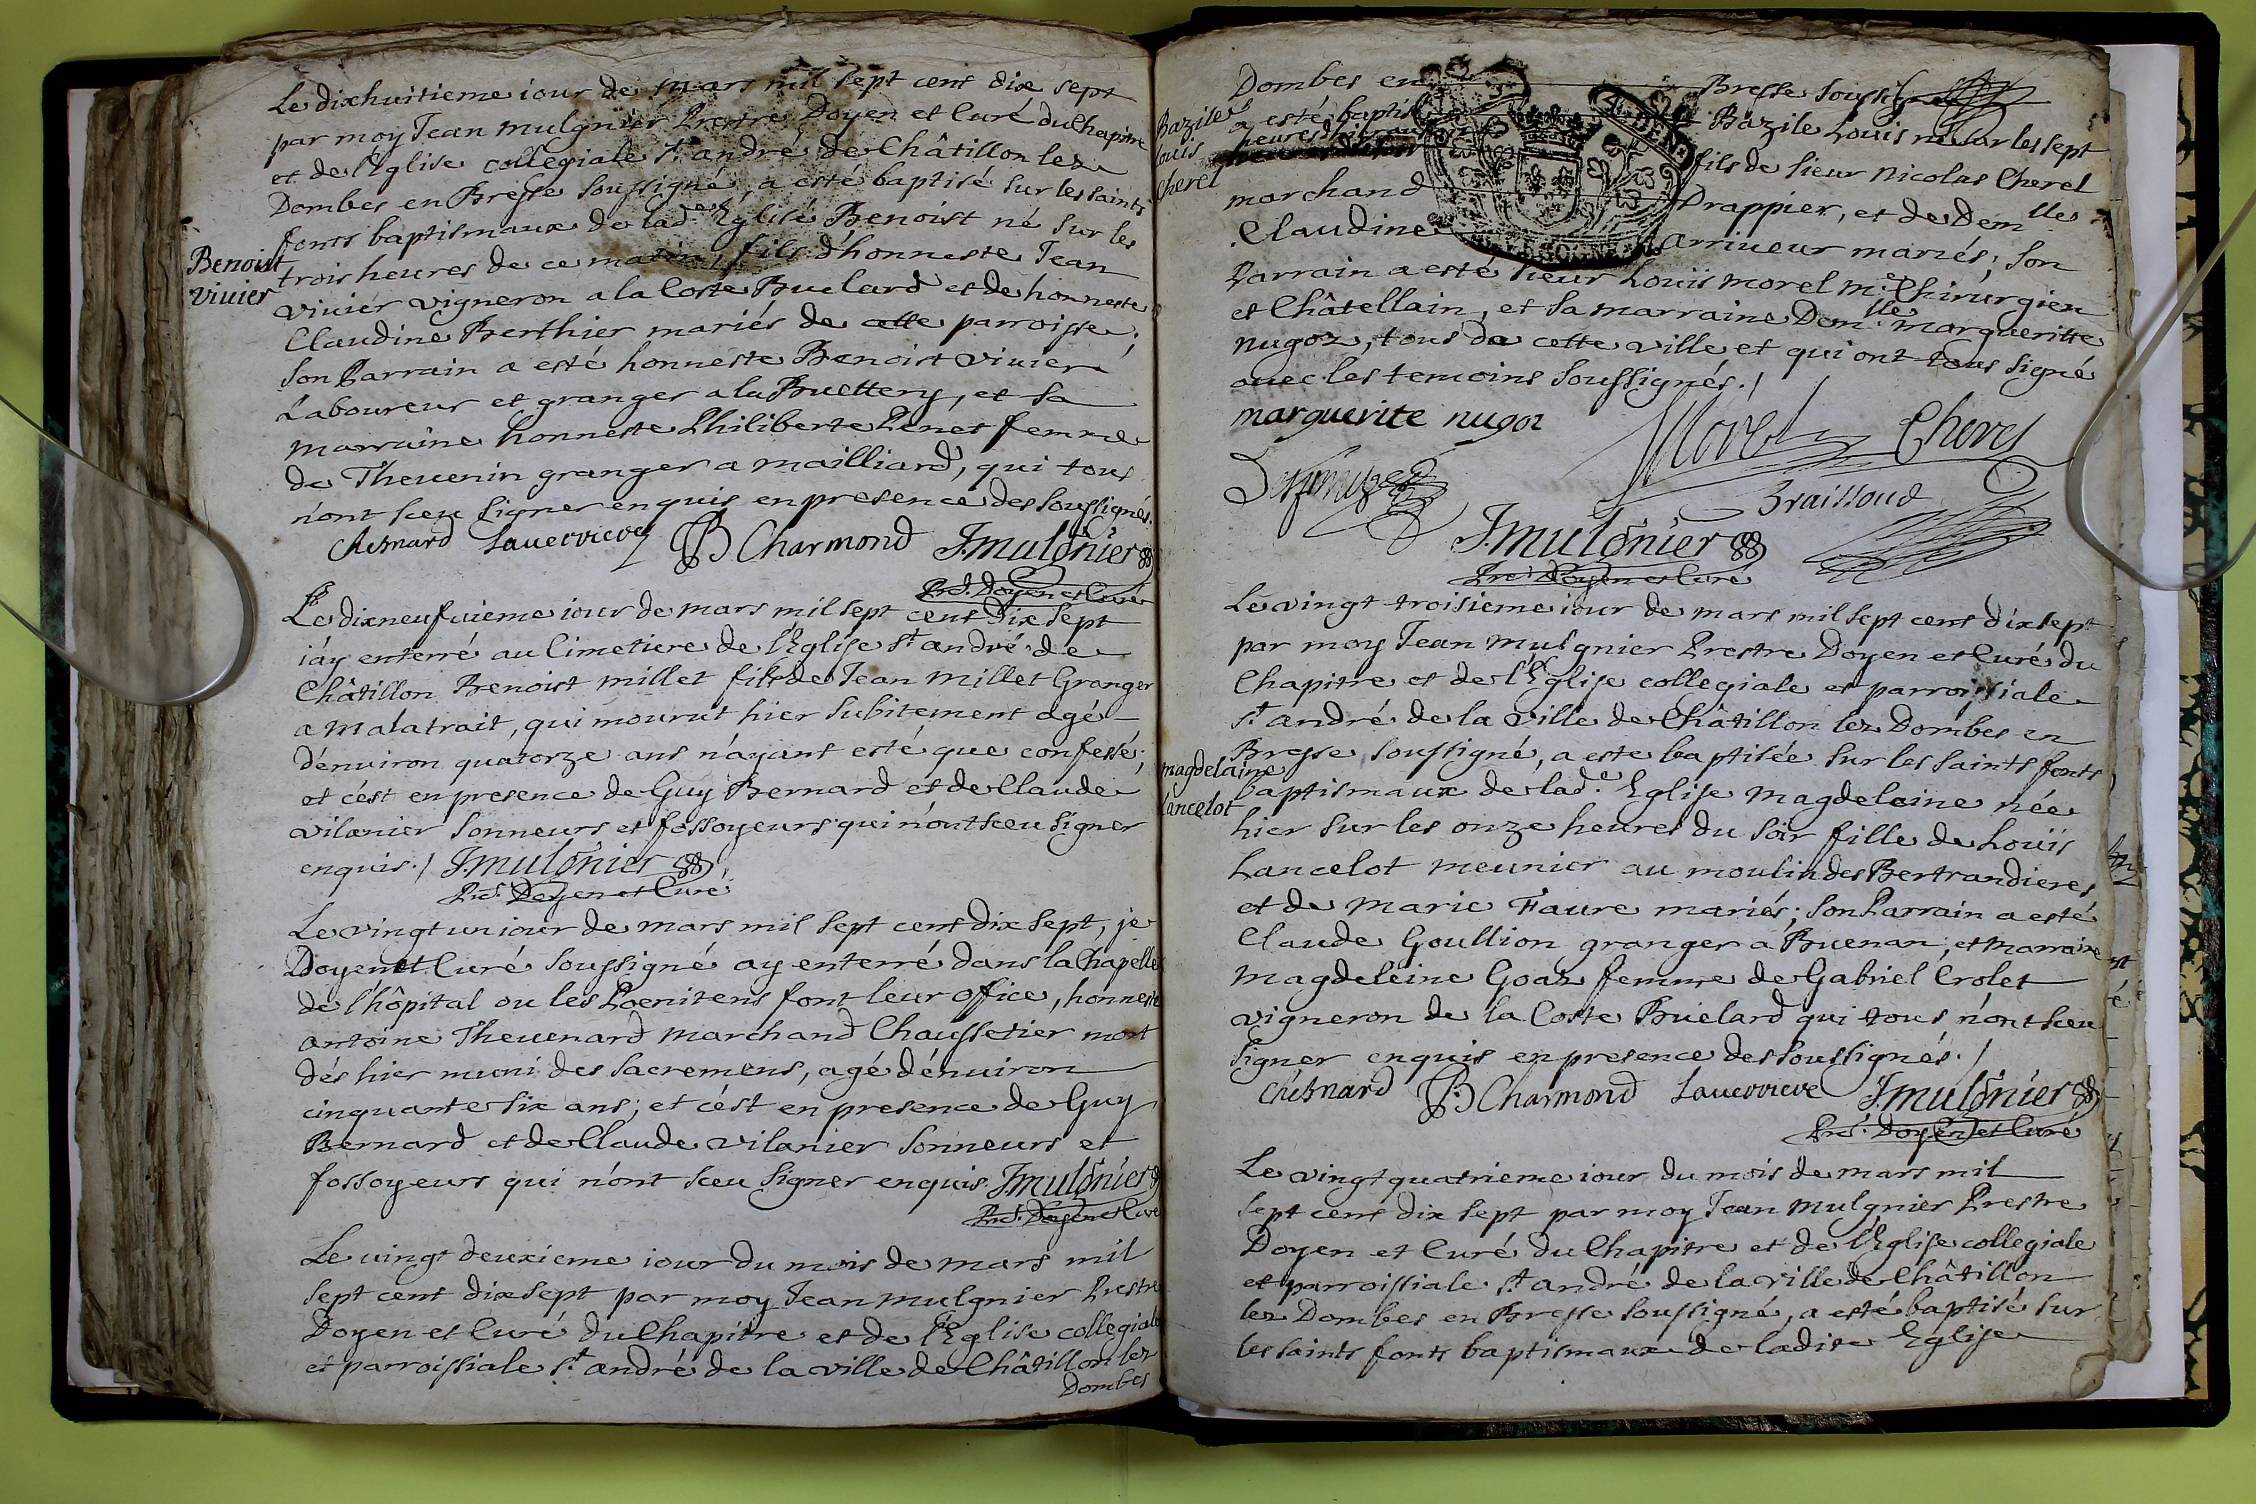 Le dixhuitieme iour de mars mil sept cent dix sept
par moy Jean mulgnier Prestre Doyen et Curé du Chapitre
et de l'Eglise collegiale st andré de Châtillon lez
Dombes en Bresse soussigné, a esté baptisé sur les saints
fonts baptismaux de lad.e Eglise Benoist né sur les
Benoist
vivier
trois heures de ce matin, fils d'honneste Jean
vivier vigneron a la Coste Buelard et de honneste
Claudine Berthier mariés de cette parroisse;
son Parrain a esté honneste Benoist vivier
Laboureur et granger a la Buettery, et sa
marraine honneste Philiberte Penet femme
de Thevenin granger a mailliard, qui tous
n'ont sceu signer enquis en presence des soussignés.
Chesnard Laverrieve PB Charmond J. mulgnier
Pre. Doyen et Curé
Le dixneufuieme iour de mars mil sept cent dix sept
i'ay enterré au Cimetiere de l'Eglise st andré de
Châtillon Benoist millet fils de Jean millet Granger
a Malatrait, qui mourut hier subitement agé
d'environ quatorze ans n'ayant esté que confessé;
et c'est en presence de Guy Bernard et de Claude
vilanier sonneurs et fossoyeurs qui n'ont sceu signer
enquis./ J. mulgnier
Pre. Doyen et Curé
Le vingt un iour de mars mil sept cent dix sept, je
Doyen et Curé soussigné ay enterré dans la Chapelle
de l'hôpital ou les Poenitens font leur office, honneste
antoine Thevenard marchand Chaussetier mort
dés hier muni des sacremens, agé d'environ
cinquante six ans; et c'est en presence de Guy
Bernard et de Claude vilanier sonneurs et
fossoyeurs qui n'ont sceu signer enquis. J. mulgnier
Pre. Doyen et Curé
Le vingt deuxieme iour du mois de mars mil
sept cent dix sept par moy Jean mulgnier Prestre
Doyen et Curé du Chapitre et de l'Eglise collegiale
et parroissiale st andré de la ville de Châtillon lez
Dombes
Dombes en Bresse soussigné
Bazile
Louis
Cherel
a esté baptisé Bazile Louis né sur les sept
heures fils de sieur Nicolas Cherel
marchand Drappier, et de Dem.lle
Claudine arriveur mariés; son
Parrain a esté sieur Louïs morel m.e Chirurgien
et Châtellain, et sa marraine Dem.lle margueritte
nugoz, tous de cette ville et qui ont tous signé
avec les temoins soussignés./
marguerite nugoz Morel Cherel
Braissoud
J. mulgnier
Pre. Doyen et Curé
Le vingt troisieme iour de mars mil sept cent dix sept
par moy Jean mulgnier Prestre Doyen et Curé du
Chapitre et de l'Eglise collegiale et parroissiale
st andré de la ville de Châtillon lez Dombes en
Bresse soussigné, a esté baptisée sur les saints fonts
magdelaine
Lancelot
baptismaux de lad.e Eglise magdeleine née
hier sur les onze heures du soir fille de Louïs
Lancelot meunier au moulin des Bertrandieres
et de marie Faure mariés; son Parrain a esté
Claude Goullion granger a Buenan, et marraine
magdeleine Goaz femme de Gabriel Crolet
vigneron de la Coste Buelard qui tous n'ont sceu
signer enquis en presence des soussignés./
Chesnard PB Charmond Laverrieve J. mulgnier
Pre. Doyen et Curé
Le vingt quatrieme iour du mois de mars mil
sept cent dix sept par moy Jean mulgnier Prestre
Doyen et Curé du Chapitre et de l'Eglise collegiale
et parroissiale st andré de la ville de Châtillon
lez Dombes en Bresse soussigné, a esté baptisé sur
les saints fonts baptismaux de ladite Eglise